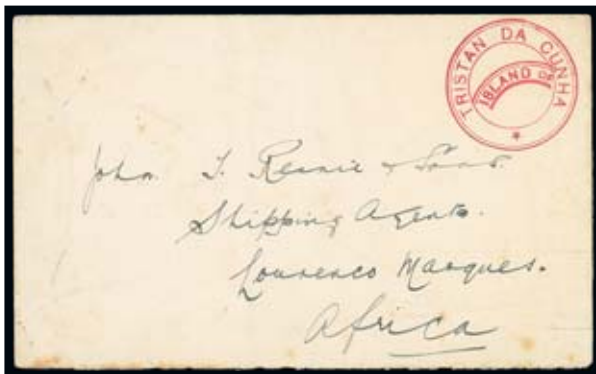 TRISTAN DA CUNHA
ISLAND OF
John T. Rennie & Sons.
Shipping Agents.
Lourenco Marques.
Africa